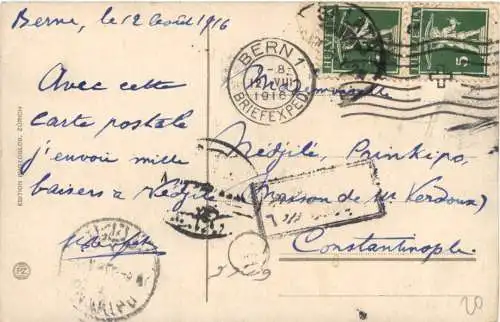 Berne, le 12 Août 1916
Avec cette
carte postale
j'envoie mille
baisers à Nedjilé
EDITION PHOTOGLOB, ZÜRICH
PZ
HELVETIA
HELVETIA
5
BERN 1
12. VIII.
1916
BRIEFEXPED.
Mademoiselle
Nedjilé, Prinkipo,
(Maison de Mr Verdoux)
Constantinople
20